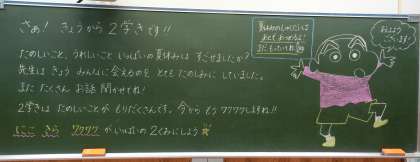 さぁ! きょうから2学きです!!
たのしいこと、うれしいこと いっぱいの夏休みは すごせましたか?
先生は きょう みんなに会えるのを とても たのしみに していました。
また たくさん お話 聞かせてね!
2学きは たのしいことが もりだくさんです。今から もう ワクワクしますね!!
にこ きら ワクワク がいっぱいの 2くみにしよう
夏休みのしゅくだいは
あとで あつめるよ!
まだ もっていてね
おはよう
ございます!